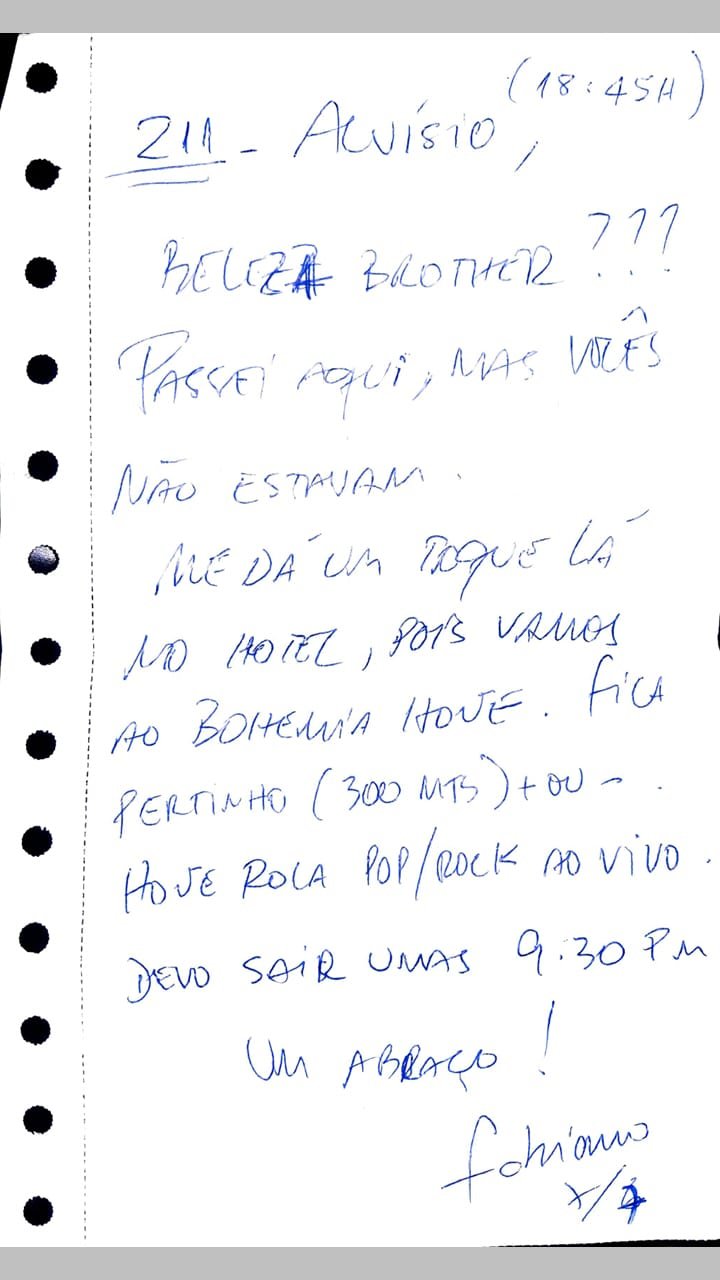 (18:45H)
211 - ALVÍSIO,
BELEZA BROTHER???
PASSEI AQUI, MAS VOCÊS
NÃO ESTAVAM.
ME DÁ UM TOQUE LÁ
NO HOTEL, POIS VAMOS
AO BOHEMIA HOJE. FICA
PERTINHO (300 MTS) + OU - .
HOJE ROLA POP/ROCK AO VIVO.
DEVO SAIR UMAS 9:30 PM
UM ABRAÇO!
Fabiano